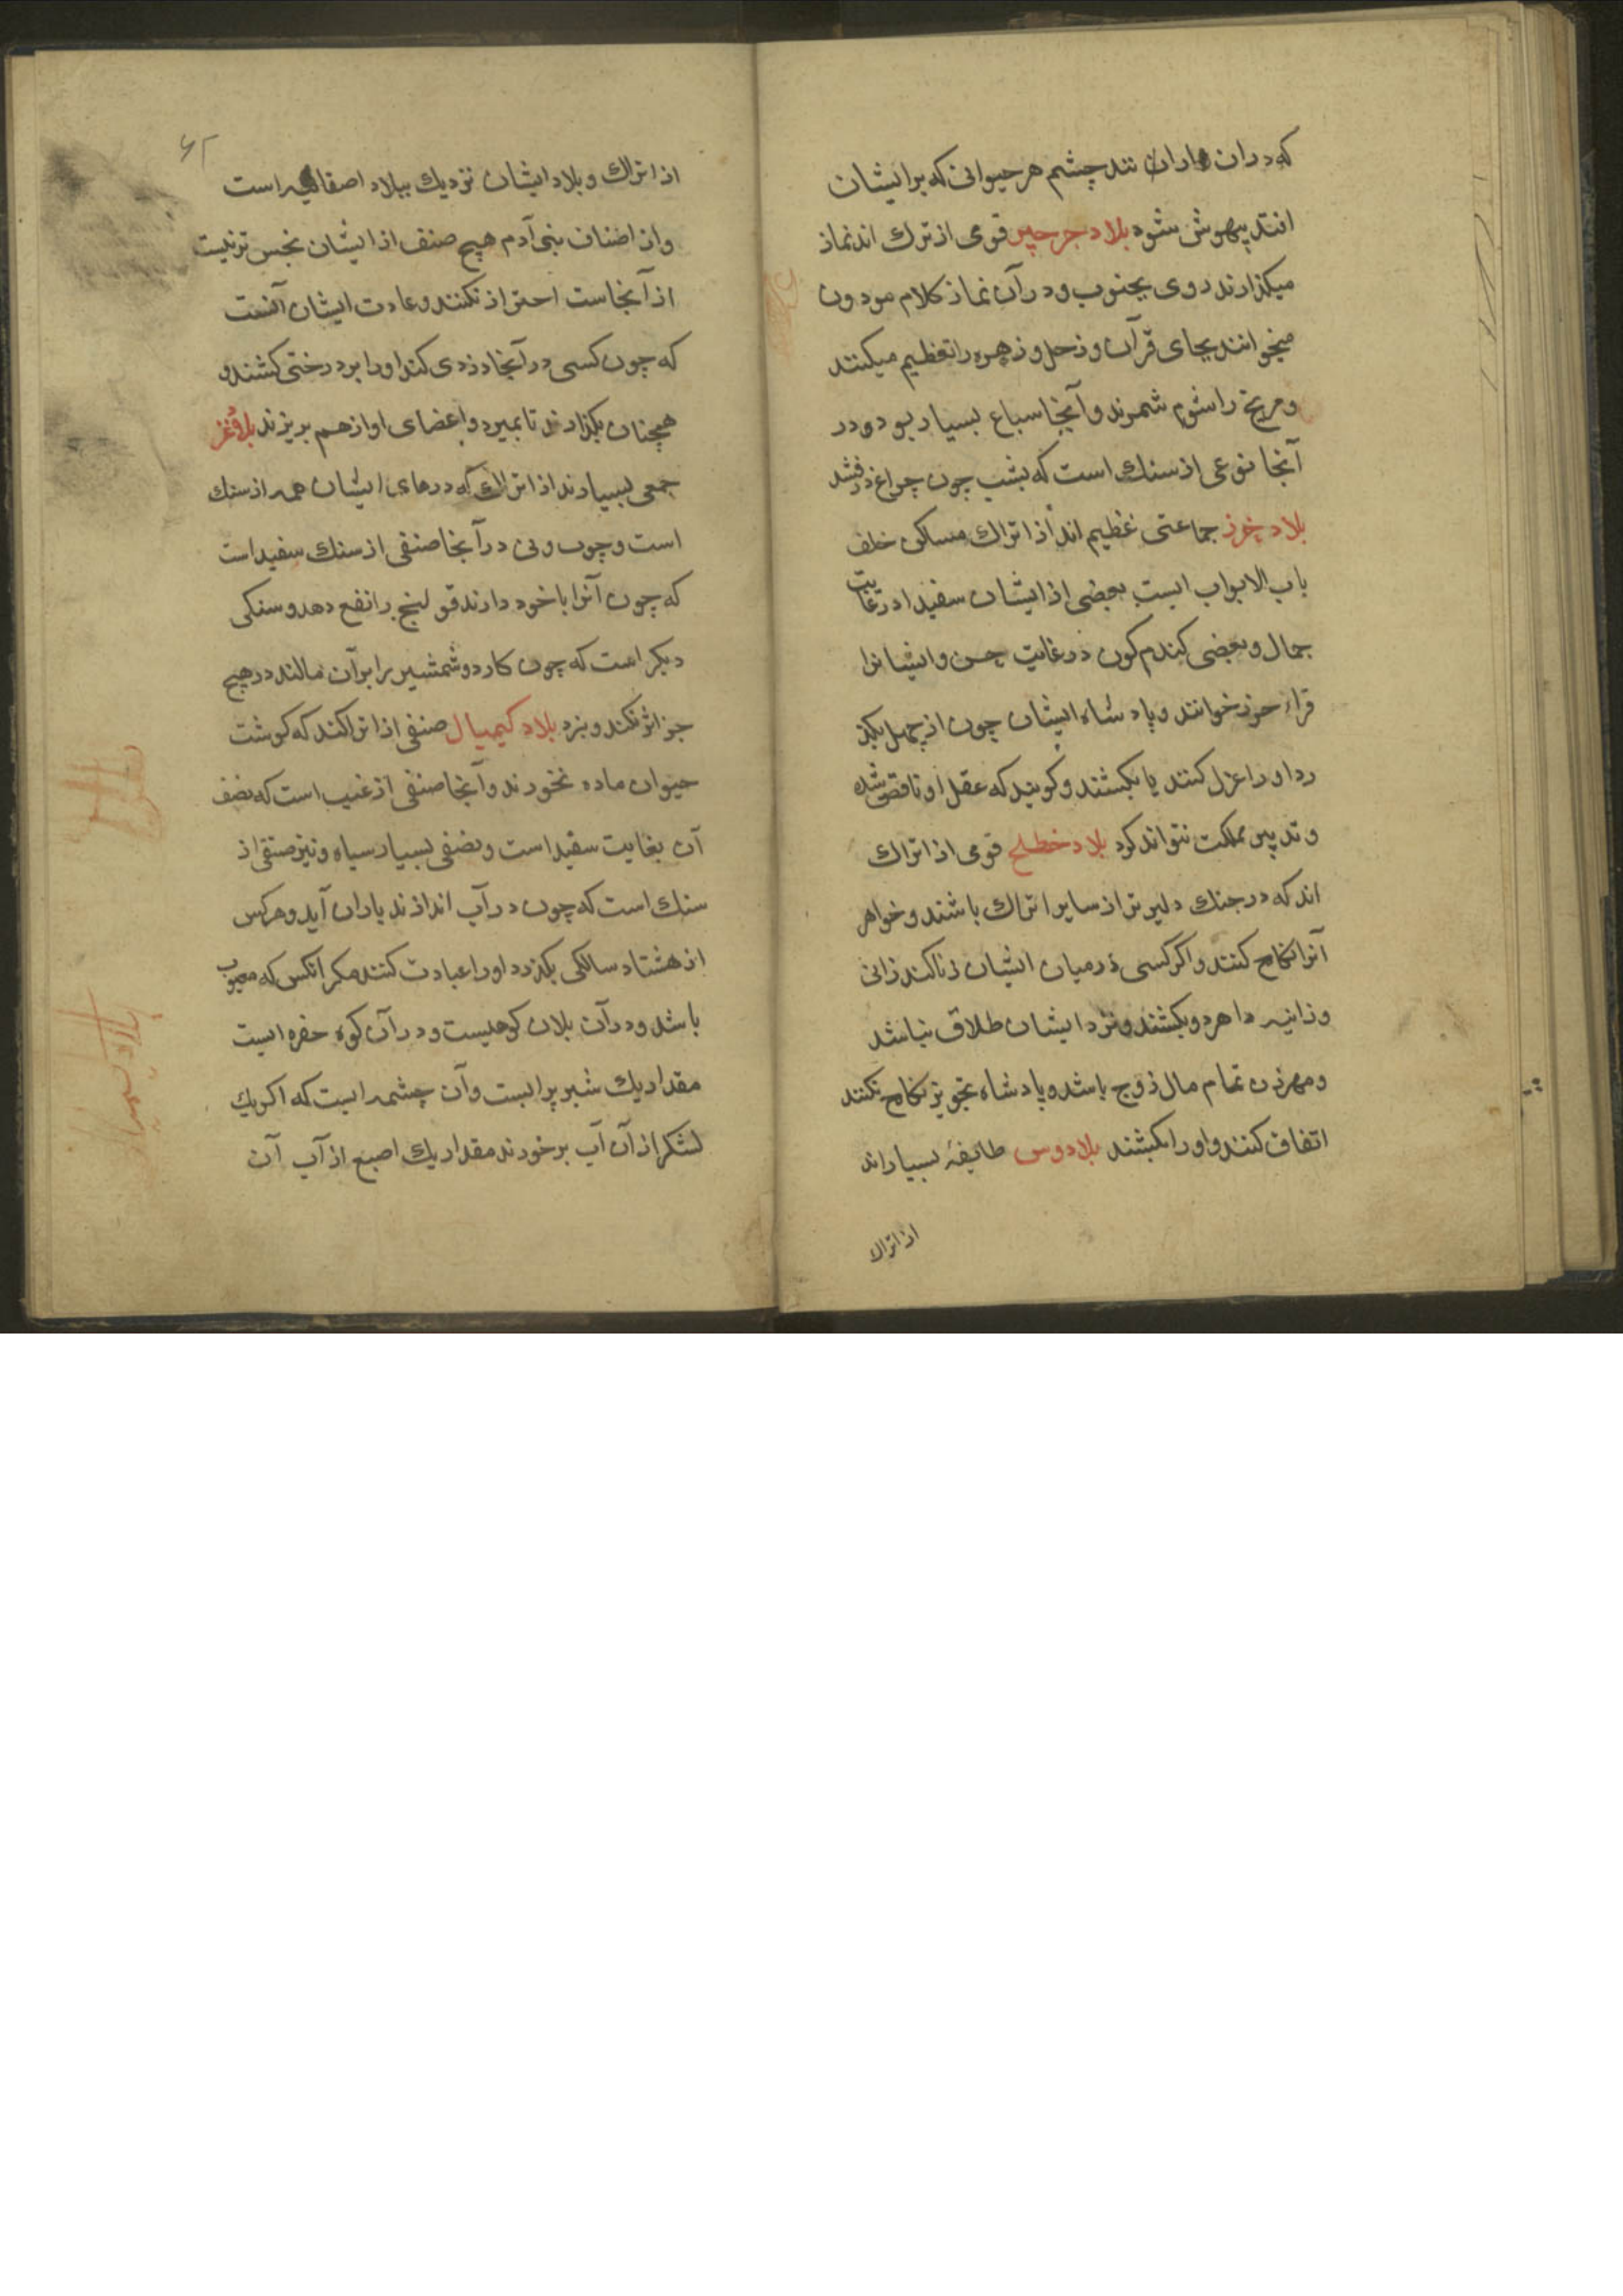 که دران باران تند چشم هر حیوانی که بر ایشان
افتد بیهوش شود بلاد جرجیر قومی از ترک اند نماز
میکذارند روی بجنوب و در آن نماز کلام موزون
میخوانند بجای قرآن و زحل و زهره را تعظیم میکنند
و مریخ را شوم شمرند و آنجا سباع بسیار بود و در
آنجا نوعی از سنک است که بشب چون چراغ درفشد
بلاد خرز جماعتی عظیم اند از اتراک مساکن خلف
باب الابواب ایست بعضی از ایشان سفیداند در غایت
جمال و بعضی کندم کون در غایت حسن و ایشانرا
قراء خرز خوانند و پادشاه ایشان چون از چهل بکذ
رد او را عزل کنند یا بکشند و کویند که عقل او ناقص شده
و تدبیر مملکت نتواند کرد بلاد خطلح قومی از اتراک
اند که در جنک دلیر تر از سایر اتراک باشند و خواهر
آنرا نکاح کنند و اکر کسی در میان ایشان زنا کند زانی
و زانیه را هر دو بکشند و نزد ایشان طلاق نباشد
و مهر زن تمام مال زوج باشد و پادشاه تجویز نکاح نکنند
اتفاق کنند و او را بکشند بلاد وس طایفهٔ بسیار اند
از اتراک
۶۲
از اتراک و بلاد ایشان نزدیک ببلاد اصقالیه است
و از اصناف بنی آدم هیچ صنف از ایشان نجس تر نیست
از آنجاست احتراز نکنند و عادت ایشان آنست
که چون کسی در آنجا دزدی کند او را بر درختی کشند و
همچنان بکذارند تا بمیرد و اعضای او از هم بریزند بلاد غز
جمعی بسیارند از اتراک که درهای ایشان همه از سنک
است و چوب و نی در آنجا صنفی از سنک سفید است
که چون آنرا با خود دارند قولنج را نفع دهد و سنکی
دیکر است که چون کارد و شمشیر را بر آن مالند در هیچ
جز اثر نکند و نبرد بلاد کیمیال صنفی از اتراکند که کوشت
حیوان ماده نخورند و آنجا صنفی از عنب است که نصف
آن بغایت سفید است و نصفی بسیار سیاه و نیز صنفی از
سنک است که چون در آب اندازند باران آید و هر کس
از هشتاد سالکی بکذرد او را عبادت کنند مکر آنکس که معیوب
باشد و در آن بلاد کوهیست و در آن کوه حفره ایست
مقدار یک شبر پر ابست و آن چشمه ایست که اکر یک
لشکر از آن آب بر خورند مقدار یک اصبع از آب آن